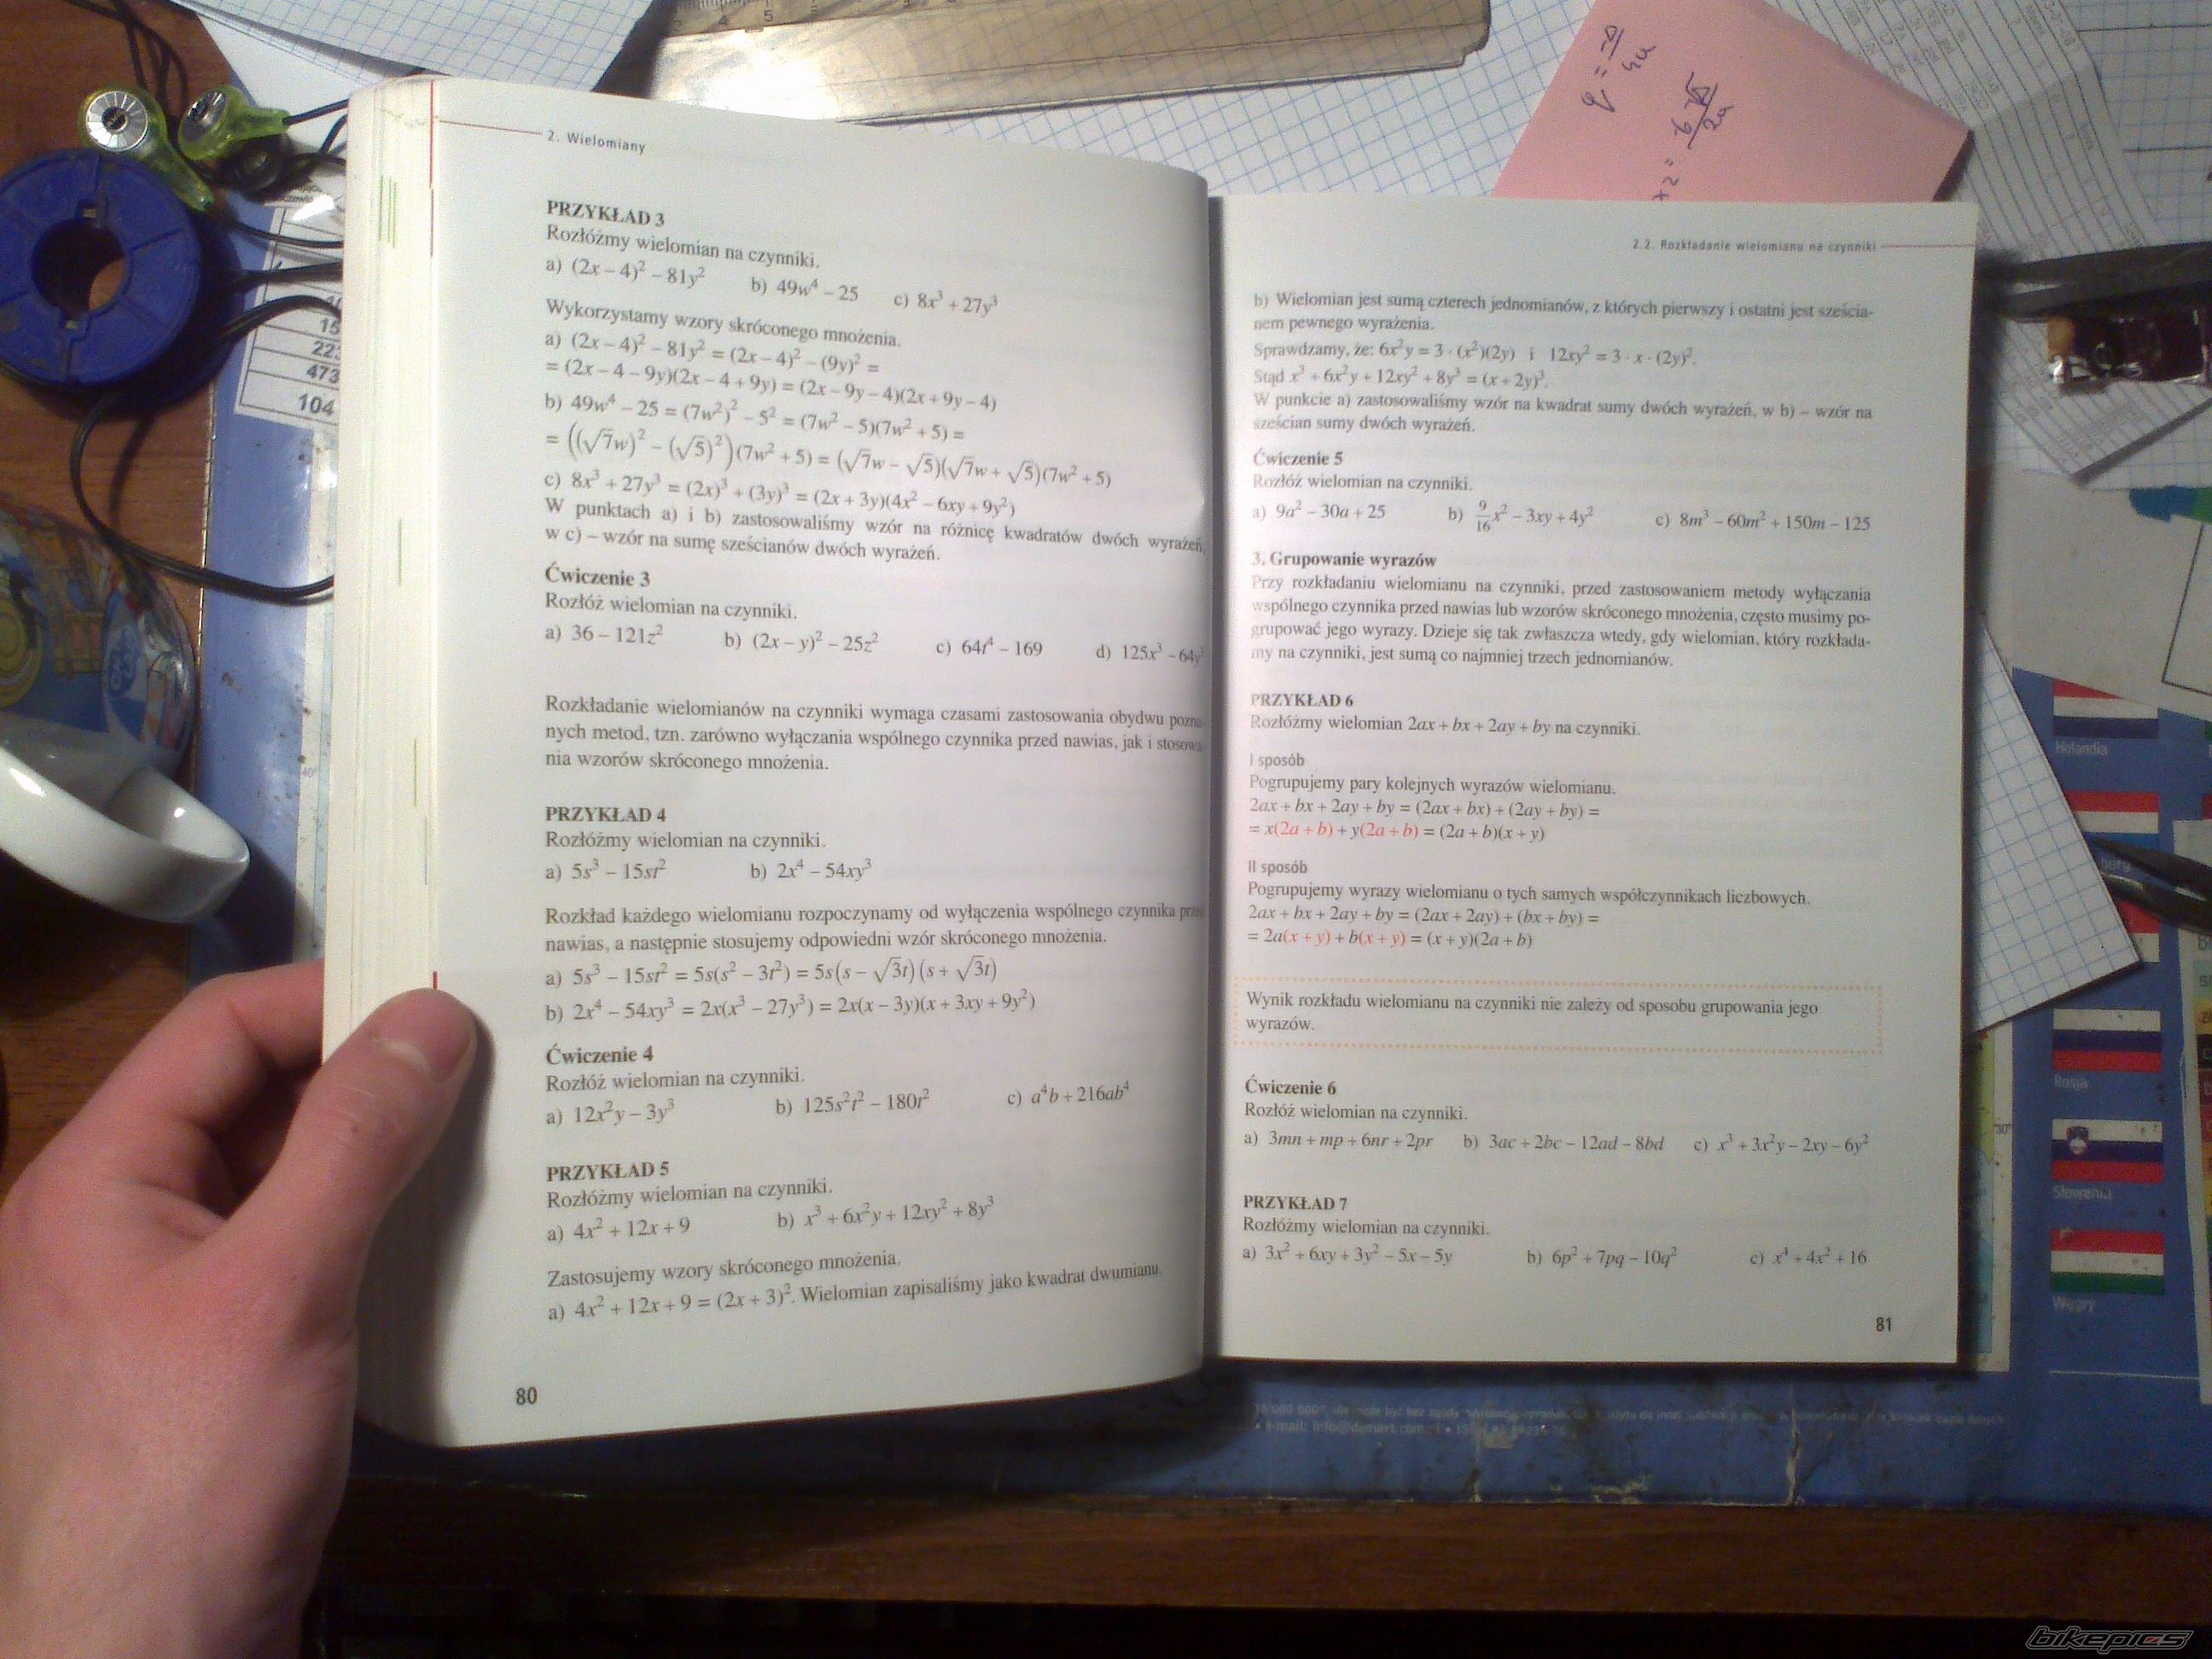 2. Wielomiany
PRZYKŁAD 3
Rozłóżmy wielomian na czynniki.
a) (2x – 4)² – 81y² b) 49w⁴ – 25 c) 8x³ + 27y³
Wykorzystamy wzory skróconego mnożenia.
a) (2x – 4)² – 81y² = (2x – 4)² – (9y)² =
= (2x – 4 – 9y)(2x – 4 + 9y) = (2x – 9y – 4)(2x + 9y – 4)
b) 49w⁴ – 25 = (7w²)² – 5² = (7w² – 5)(7w² + 5) =
= ((√7w)² – (√5)²)(7w² + 5) = (√7w – √5)(√7w + √5)(7w² + 5)
c) 8x³ + 27y³ = (2x)³ + (3y)³ = (2x + 3y)(4x² – 6xy + 9y²)
W punktach a) i b) zastosowaliśmy wzór na różnicę kwadratów dwóch wyrażeń,
w c) – wzór na sumę sześcianów dwóch wyrażeń.
Ćwiczenie 3
Rozłóż wielomian na czynniki.
a) 36 – 121z² b) (2x – y)² – 25z² c) 64t⁴ – 169 d) 125x³ – 64y³
Rozkładanie wielomianów na czynniki wymaga czasami zastosowania obydwu pozna-
nych metod, tzn. zarówno wyłączania wspólnego czynnika przed nawias, jak i stosowa-
nia wzorów skróconego mnożenia.
PRZYKŁAD 4
Rozłóżmy wielomian na czynniki.
a) 5s³ – 15st² b) 2x⁴ – 54xy³
Rozkład każdego wielomianu rozpoczynamy od wyłączenia wspólnego czynnika przed
nawias, a następnie stosujemy odpowiedni wzór skróconego mnożenia.
a) 5s³ – 15st² = 5s(s² – 3t²) = 5s(s – √3t)(s + √3t)
b) 2x⁴ – 54xy³ = 2x(x³ – 27y³) = 2x(x – 3y)(x + 3xy + 9y²)
Ćwiczenie 4
Rozłóż wielomian na czynniki.
a) 12x²y – 3y³ b) 125s²t² – 180t² c) a⁴b + 216ab⁴
PRZYKŁAD 5
Rozłóżmy wielomian na czynniki.
a) 4x² + 12x + 9 b) x³ + 6x²y + 12xy² + 8y³
Zastosujemy wzory skróconego mnożenia.
a) 4x² + 12x + 9 = (2x + 3)². Wielomian zapisaliśmy jako kwadrat dwumianu.
80
2.2. Rozkładanie wielomianu na czynniki
b) Wielomian jest sumą czterech jednomianów, z których pierwszy i ostatni jest sześcia-
nem pewnego wyrażenia.
Sprawdzamy, że: 6x²y = 3 · (x²)(2y) i 12xy² = 3 · x · (2y)².
Stąd x³ + 6x²y + 12xy² + 8y³ = (x + 2y)³.
W punkcie a) zastosowaliśmy wzór na kwadrat sumy dwóch wyrażeń, w b) – wzór na
sześcian sumy dwóch wyrażeń.
Ćwiczenie 5
Rozłóż wielomian na czynniki.
a) 9a² – 30a + 25 b) 9/16x² – 3xy + 4y² c) 8m³ – 60m² + 150m – 125
3. Grupowanie wyrazów
Przy rozkładaniu wielomianu na czynniki, przed zastosowaniem metody wyłączania
wspólnego czynnika przed nawias lub wzorów skróconego mnożenia, często musimy po-
grupować jego wyrazy. Dzieje się tak zwłaszcza wtedy, gdy wielomian, który rozkłada-
my na czynniki, jest sumą co najmniej trzech jednomianów.
PRZYKŁAD 6
Rozłóżmy wielomian 2ax + bx + 2ay + by na czynniki.
I sposób
Pogrupujemy pary kolejnych wyrazów wielomianu.
2ax + bx + 2ay + by = (2ax + bx) + (2ay + by) =
= x(2a + b) + y(2a + b) = (2a + b)(x + y)
II sposób
Pogrupujemy wyrazy wielomianu o tych samych współczynnikach liczbowych.
2ax + bx + 2ay + by = (2ax + 2ay) + (bx + by) =
= 2a(x + y) + b(x + y) = (x + y)(2a + b)
Wynik rozkładu wielomianu na czynniki nie zależy od sposobu grupowania jego
wyrazów.
Ćwiczenie 6
Rozłóż wielomian na czynniki.
a) 3mn + mp + 6nr + 2pr b) 3ac + 2bc – 12ad – 8bd c) x³ + 3x²y – 2xy – 6y²
PRZYKŁAD 7
Rozłóżmy wielomian na czynniki.
a) 3x² + 6xy + 3y² – 5x – 5y b) 6p² + 7pq – 10q² c) x⁴ + 4x² + 16
81
Holandia
Rosja
Słowenia
Węgry
473
104
bikepics